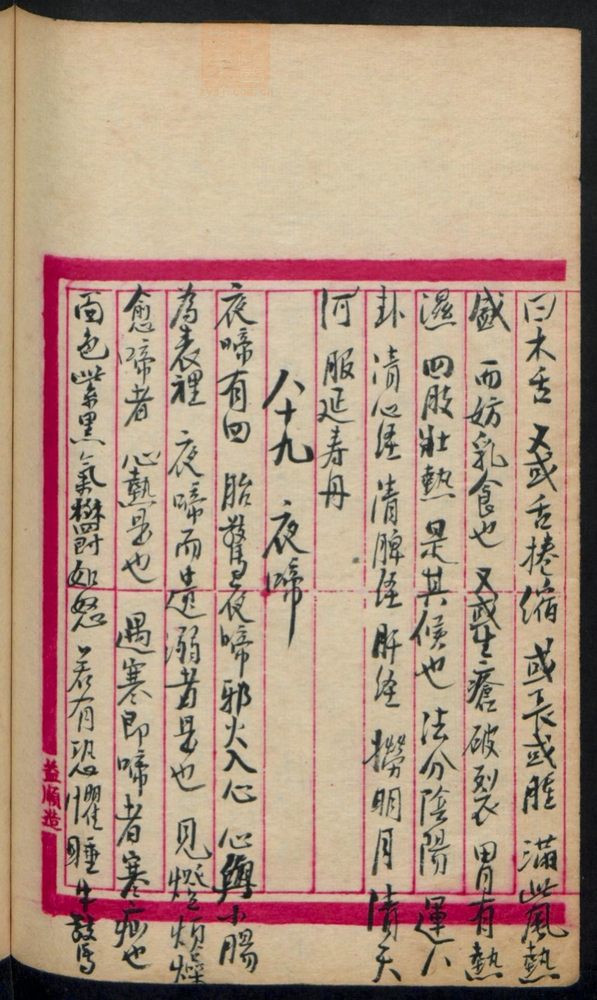 曰木舌 又或舌捲縮 或長或腫 滿此風熱
盛 而妨乳食也 又或生瘡破裂 胃有熱
濕 四肢壯熱 是其候也 法分陰陽 運八
卦 清心经 清脾经 肝经 撈明月 清天
河 服延寿丹
八十九 夜啼
夜啼有四 胎驚夜啼 邪火入心 心與小腸
為表裡 夜啼而遺溺者是也 見燈煩燥
愈啼者 心熱是也 遇寒即啼者 寒疝也
面色紫黑 氣欝如怒 若有恐懼 睡中驚
益順造